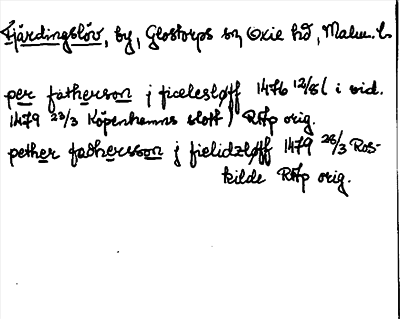 Fjärdingslöv, by, Glostorps sn, Oxie hd, Malm. l.
per fatherson j ficelesløff 1476 12/8 l i vid.
1479 23/3 Köpenhamns slott RAp orig.
pether fadhersson j fielidzløff 1479 26/3 Ros-
kilde RAp orig.